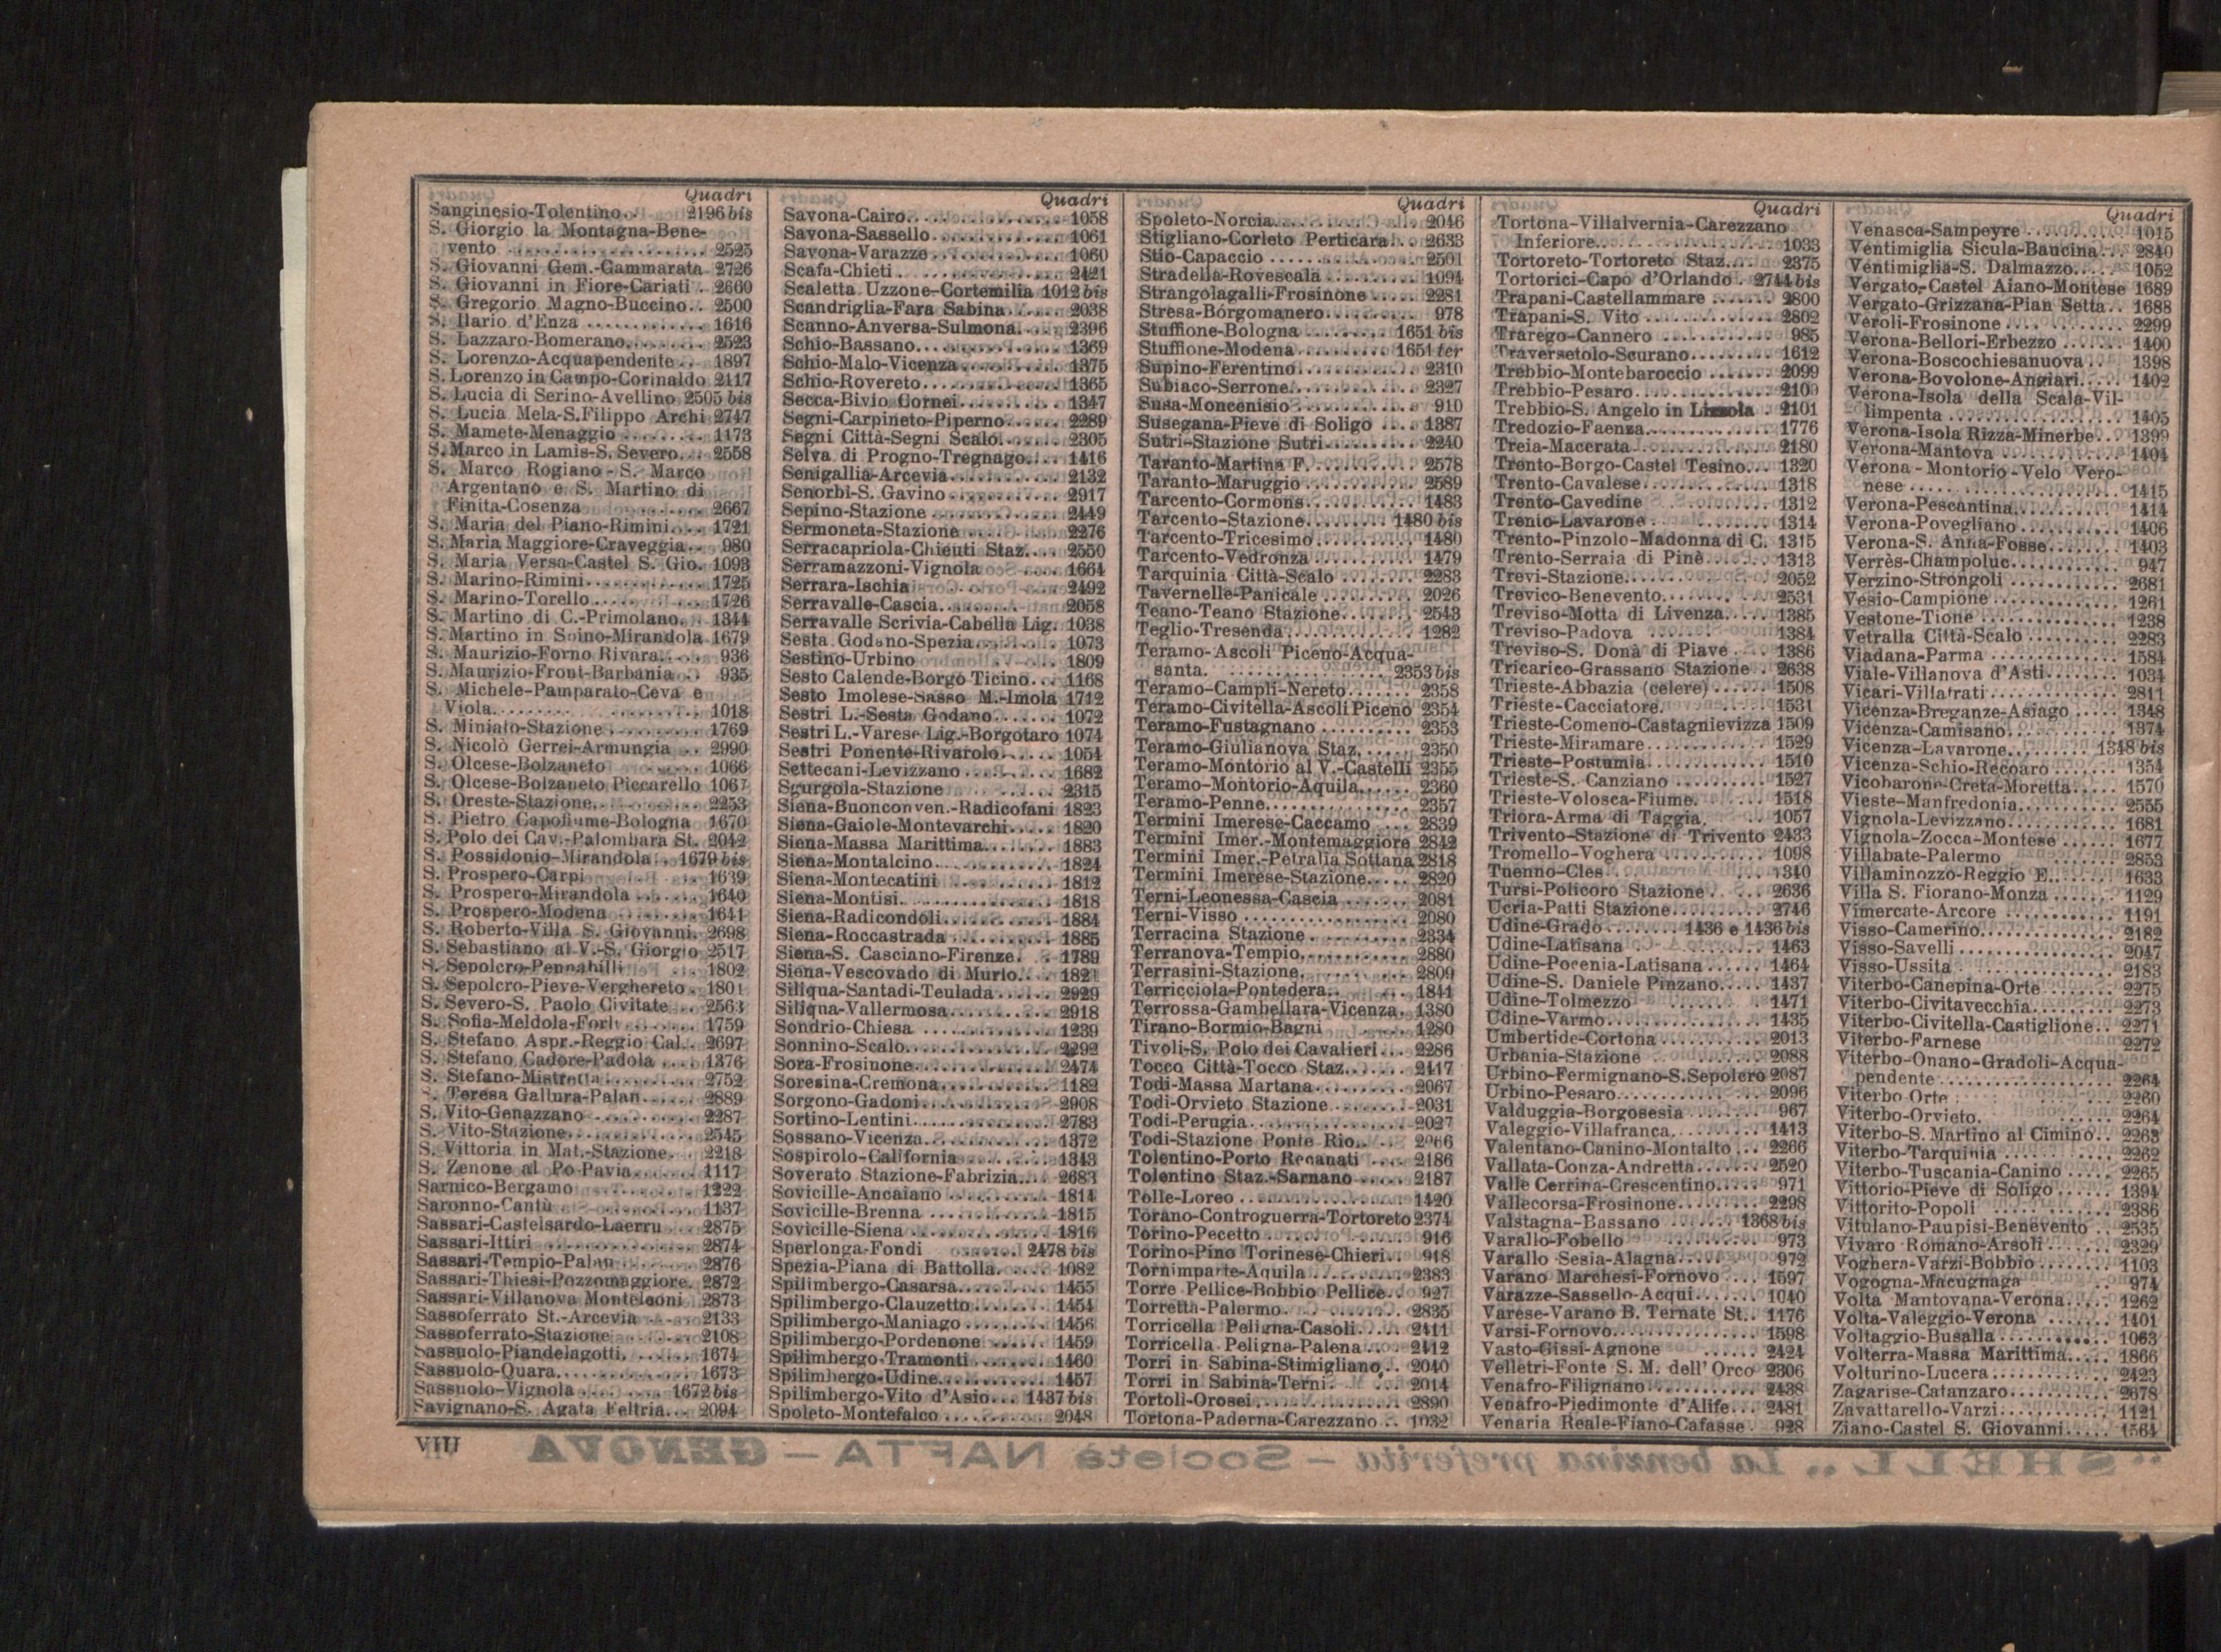 Quadri
Sanginesio-Tolentino.. 2196 bis
S. Giorgio la Montagna-Bene-
vento .......... 2525
S. Giovanni Gem.-Cammarata 2726
S. Giovanni in Fiore-Cariati . 2660
S. Gregorio Magno-Buccino.. 2500
S. Ilario d'Enza .......... 1616
S. Lazzaro-Bomerano.......... 2523
S. Lorenzo-Acquapendente .. 1897
S. Lorenzo in Campo-Corinaldo 2117
S. Lucia di Serino-Avellino 2505 bis
S. Lucia Mela-S.Filippo Archi 2747
S. Mamete-Menaggio .......... 1173
S. Marco in Lamis-S. Severo... 2558
S. Marco Rogiano - S. Marco
Argentano e S. Martino di
Finita-Cosenza .......... 2667
S. Maria del Piano-Rimini.... 1721
S. Maria Maggiore-Craveggia.. 980
S. Maria Versa-Castel S. Gio. 1093
S. Marino-Rimini.......... 1725
S. Marino-Torello.......... 1726
S. Martino di C.-Primolano... 1344
S. Martino in Spino-Mirandola 1679
S. Maurizio-Forno Rivara..... 936
S. Maurizio-Front-Barbania .. 935
S. Michele-Pamparato-Ceva e
Viola.......... 1018
S. Miniato-Stazione .......... 1769
S. Nicolò Gerrei-Armungia .. 2990
S. Olcese-Bolzaneto .......... 1066
S. Olcese-Bolzaneto Piccarello 1067
S. Oreste-Stazione.......... 2253
S. Pietro Capofiume-Bologna 1670
S. Polo dei Cav.-Palombara St. 2042
S. Possidonio-Mirandola .. 1679 bis
S. Prospero-Carpi .......... 1639
S. Prospero-Mirandola ...... 1640
S. Prospero-Modena .......... 1641
S. Roberto-Villa S. Giovanni. 2698
S. Sebastiano al V.-S. Giorgio 2517
S. Sepolcro-Pennabilli .... 1802
S. Sepolcro-Pieve-Verghereto . 1801
S. Severo-S. Paolo Civitate .. 2563
S. Sofia-Meldola-Forlì ...... 1759
S. Stefano Aspr.-Reggio Cal.. 2697
S. Stefano Cadore-Padola .... 1376
S. Stefano-Mistretta.......... 2752
S. Teresa Gallura-Palau...... 2889
S. Vito-Genazzano .......... 2287
S. Vito-Stazione.......... 2545
S. Vittoria in Mat.-Stazione. . 2218
S. Zenone al Po-Pavia....... 1117
Sarnico-Bergamo .......... 1222
Saronno-Cantù .......... 1137
Sassari-Castelsardo-Laerru ... 2875
Sassari-Ittiri .......... 2874
Sassari-Tempio-Palau ...... 2876
Sassari-Thiesi-Pozzomaggiore. 2872
Sassari-Villanova Monteleoni 2873
Sassoferrato St.-Arcevia ..... 2133
Sassoferrato-Stazione ...... 2108
Sassuolo-Piandelagotti. ...... 1674
Sassuolo-Quara.......... 1673
Sassuolo-Vignola .......... 1672 bis
Savignano-S. Agata Feltria... 2094
Quadri
Savona-Cairo.......... 1058
Savona-Sassello.......... 1061
Savona-Varazze .......... 1060
Scafa-Chieti .......... 2421
Scaletta Uzzone-Cortemilia 1012 bis
Scandriglia-Fara Sabina...... 2038
Scanno-Anversa-Sulmona..... 2396
Schio-Bassano.......... 1369
Schio-Malo-Vicenza.......... 1375
Schio-Rovereto.......... 1365
Secca-Bivio Cornei.......... 1347
Segni-Carpineto-Piperno...... 2289
Segni Città-Segni Scalo....... 2305
Selva di Progno-Tregnago.... 1416
Senigallia-Arcevia.......... 2132
Senorbì-S. Gavino .......... 2917
Sepino-Stazione .......... 2449
Sermoneta-Stazione .......... 2276
Serracapriola-Chieuti Staz.... 2550
Serramazzoni-Vignola ...... 1664
Serrara-Ischia .......... 2492
Serravalle-Cascia.......... 2058
Serravalle Scrivia-Cabella Lig. 1038
Sesta Godano-Spezia.......... 1073
Sestino-Urbino .......... 1809
Sesto Calende-Borgo Ticino... 1168
Sesto Imolese-Sasso M.-Imola 1712
Sestri L.-Sesta Godano....... 1072
Sestri L.-Varese Lig.-Borgotaro 1074
Sestri Ponente-Rivarolo...... 1054
Settecani-Levizzano .......... 1682
Sgurgola-Stazione .......... 2315
Siena-Buonconven.-Radicofani 1823
Siena-Gaiole-Montevarchi..... 1820
Siena-Massa Marittima....... 1883
Siena-Montalcino.......... 1824
Siena-Montecatini .......... 1812
Siena-Montisi.......... 1818
Siena-Radicondoli.......... 1884
Siena-Roccastrada .......... 1885
Siena-S. Casciano-Firenze. .. 1789
Siena-Vescovado di Murlo.... 1821
Siliqua-Santadi-Teulada...... 2929
Siliqua-Vallermosa.......... 2918
Sondrio-Chiesa .......... 1239
Sonnino-Scalo.......... 2292
Sora-Frosinone.......... 2474
Soresina-Cremona.......... 1182
Sorgono-Gadoni.......... 2908
Sortino-Lentini.......... 2783
Sossano-Vicenza.......... 1372
Sospirolo-California .......... 1343
Soverato Stazione-Fabrizia.... 2683
Sovicille-Ancaiano .......... 1814
Sovicille-Brenna .......... 1815
Sovicille-Siena .......... 1816
Sperlonga-Fondi ...... 2478 bis
Spezia-Piana di Battolla...... 1082
Spilimbergo-Casarsa.......... 1455
Spilimbergo-Clauzetto........ 1454
Spilimbergo-Maniago ........ 1456
Spilimbergo-Pordenone ...... 1459
Spilimbergo-Tramonti ........ 1460
Spilimbergo-Udine.......... 1457
Spilimbergo-Vito d'Asio... 1437 bis
Spoleto-Montefalco .......... 2048
Quadri
Spoleto-Norcia.......... 2046
Stigliano-Corleto Perticara... 2633
Stio-Capaccio .......... 2501
Stradella-Rovescala .......... 1094
Strangolagalli-Frosinone ..... 2281
Stresa-Borgomanero.......... 978
Stuffione-Bologna ........ 1651 bis
Stuffione-Modena ........ 1651 ter
Supino-Ferentino.......... 2310
Subiaco-Serrone.......... 2327
Susa-Moncenisio .......... 910
Susegana-Pieve di Soligo .... 1387
Sutri-Stazione Sutri.......... 2240
Taranto-Martina F. .......... 2578
Taranto-Maruggio .......... 2589
Tarcento-Cormons.......... 1483
Tarcento-Stazione........ 1480 bis
Tarcento-Tricesimo.......... 1480
Tarcento-Vedronza .......... 1479
Tarquinia Città-Scalo ........ 2283
Tavernelle-Panicale .......... 2026
Teano-Teano Stazione........ 2543
Teglio-Tresenda.......... 1282
Teramo-Ascoli Piceno-Acqua-
santa. .......... 2353 bis
Teramo-Campli-Nereto........ 2358
Teramo-Civitella-Ascoli Piceno 2354
Teramo-Fustagnano .......... 2353
Teramo-Giulianova Staz. ..... 2350
Teramo-Montorio al V.-Castelli 2355
Teramo-Montorio-Aquila...... 2360
Teramo-Penne.......... 2357
Termini Imerese-Caccamo ... 2839
Termini Imer.-Montemaggiore 2842
Termini Imer.-Petralia Sottana 2818
Termini Imerese-Stazione..... 2820
Terni-Leonessa-Cascia ....... 2081
Terni-Visso .......... 2080
Terracina Stazione .......... 2334
Terranova-Tempio.......... 2880
Terrasini-Stazione.......... 2809
Terricciola-Pontedera.. .... 1841
Terrossa-Gambellara-Vicenza. 1380
Tirano-Bormio-Bagni ...... 1280
Tivoli-S. Polo dei Cavalieri... 2286
Tocco Città-Tocco Staz....... 2417
Todi-Massa Martana.......... 2067
Todi-Orvieto Stazione........ 2031
Todi-Perugia.......... 2027
Todi-Stazione Ponte Rio.... 2066
Tolentino-Porto Recanati .... 2186
Tolentino Staz.-Sarnano ..... 2187
Tolle-Loreo .......... 1420
Torano-Controguerra-Tortoreto 2374
Torino-Pecetto .......... 916
Torino-Pino Torinese-Chieri.. 918
Tornimparte-Aquila .......... 2383
Torre Pellice-Bobbio Pellice.. 927
Torretta-Palermo.......... 2835
Torricella Peligna-Casoli..... 2411
Torricella Peligna-Palena.... 2412
Torri in Sabina-Stimigliano... 2040
Torri in Sabina-Terni........ 2014
Tortolì-Orosei.......... 2890
Tortona-Paderna-Carezzano .. 1032
Quadri
Tortona-Villalvernia-Carezzano
Inferiore.......... 1033
Tortoreto-Tortoreto Staz..... 2375
Tortorici-Capo d'Orlando . 2744 bis
Trapani-Castellammare ....... 2800
Trapani-S. Vito .......... 2802
Trarego-Cannero .......... 985
Traversetolo-Scurano........ 1612
Trebbio-Montebaroccio ....... 2099
Trebbio-Pesaro .......... 2100
Trebbio-S. Angelo in Lizzola . 2101
Tredozio-Faenza.......... 1776
Treia-Macerata .......... 2180
Trento-Borgo-Castel Tesino... 1320
Trento-Cavalese.......... 1318
Trento-Cavedine .......... 1312
Trento-Lavarone .......... 1314
Trento-Pinzolo-Madonna di C. 1315
Trento-Serraia di Pinè....... 1313
Trevi-Stazione.......... 2052
Trevico-Benevento.......... 2531
Treviso-Motta di Livenza..... 1385
Treviso-Padova .......... 1384
Treviso-S. Donà di Piave .... 1386
Tricarico-Grassano Stazione . 2638
Trieste-Abbazia (celere) ...... 1508
Trieste-Cacciatore.......... 1531
Trieste-Comeno-Castagnievizza 1509
Trieste-Miramare.......... 1529
Trieste-Postumia .......... 1510
Trieste-S. Canziano .......... 1527
Trieste-Volosca-Fiume. ...... 1518
Triora-Arma di Taggia. ...... 1057
Trivento-Stazione di Trivento 2433
Tromello-Voghera .......... 1098
Tuenno-Cles .......... 1340
Tursi-Policoro Stazione ...... 2636
Ucria-Patti Stazione.......... 2746
Udine-Grado ........ 1436 e 1436 bis
Udine-Latisana .......... 1463
Udine-Pocenia-Latisana ...... 1464
Udine-S. Daniele Pinzano..... 1437
Udine-Tolmezzo .......... 1471
Udine-Varmo.......... 1435
Umbertide-Cortona .......... 2013
Urbania-Stazione .......... 2088
Urbino-Fermignano-S.Sepolcro 2087
Urbino-Pesaro.......... 2096
Valduggia-Borgosesia ........ 967
Valeggio-Villafranca.......... 1413
Valentano-Canino-Montalto ... 2266
Vallata-Conza-Andretta....... 2520
Valle Cerrina-Crescentino..... 971
Vallecorsa-Frosinone.......... 2298
Valstagna-Bassano ...... 1368 bis
Varallo-Fobello .......... 973
Varallo Sesia-Alagna.......... 972
Varano Marchesi-Fornovo .... 1597
Varazze-Sassello-Acqui....... 1040
Varese-Varano B. Ternate St.. 1176
Varsi-Fornovo.......... 1598
Vasto-Gissi-Agnone ...... 2424
Velletri-Fonte S. M. dell'Orco 2306
Venafro-Filignano .......... 2438
Venafro-Piedimonte d'Alife... 2481
Venaria Reale-Fiano-Cafasse . 928
Quadri
Venasca-Sampeyre .......... 1015
Ventimiglia Sicula-Baucina... 2840
Ventimiglia-S. Dalmazzo..... 1052
Vergato-Castel Aiano-Montese 1689
Vergato-Grizzana-Pian Setta.. 1688
Veroli-Frosinone .......... 2299
Verona-Bellori-Erbezzo ....... 1400
Verona-Boscochiesanuova .. 1398
Verona-Bovolone-Angiari..... 1402
Verona-Isola della Scala-Vil-
limpenta .......... 1405
Verona-Isola Rizza-Minerbe... 1399
Verona-Mantova .......... 1404
Verona - Montorio - Velo Vero-
nese .......... 1415
Verona-Pescantina.......... 1414
Verona-Povegliano .......... 1406
Verona-S. Anna-Fosse........ 1403
Verrès-Champoluc.......... 947
Verzino-Strongoli .......... 2681
Vesio-Campione .......... 1261
Vestone-Tione .......... 1238
Vetralla Città-Scalo .......... 2283
Viadana-Parma .......... 1584
Viale-Villanova d'Asti........ 1034
Vicari-Villafrati .......... 2811
Vicenza-Breganze-Asiago ..... 1348
Vicenza-Camisano.......... 1374
Vicenza-Lavarone........ 1348 bis
Vicenza-Schio-Recoaro ....... 1354
Vicobarone-Creta-Moretta..... 1570
Vieste-Manfredonia.......... 2555
Vignola-Levizzano.......... 1681
Vignola-Zocca-Montese ....... 1677
Villabate-Palermo ...... 2853
Villaminozzo-Reggio E........ 1633
Villa S. Fiorano-Monza ...... 1129
Vimercate-Arcore .......... 1191
Visso-Camerino.......... 2182
Visso-Savelli .......... 2047
Visso-Ussita .......... 2183
Viterbo-Canepina-Orte ....... 2275
Viterbo-Civitavecchia........ 2273
Viterbo-Civitella-Castiglione.. 2271
Viterbo-Farnese .......... 2272
Viterbo-Onano-Gradoli-Acqua-
pendente .......... 2264
Viterbo Orte .......... 2260
Viterbo-Orvieto.......... 2264
Viterbo-S. Martino al Cimino.. 2263
Viterbo-Tarquinia .......... 2262
Viterbo-Tuscania-Canino .... 2265
Vittorio-Pieve di Soligo...... 1394
Vittorito-Popoli .......... 2386
Vitulano-Paupisi-Benevento .. 2535
Vivaro Romano-Arsoli ....... 2329
Voghera-Varzi-Bobbio ........ 1103
Vogogna-Macugnaga ...... 974
Volta Mantovana-Verona..... 1262
Volta-Valeggio-Verona ....... 1401
Voltaggio-Busalla .......... 1063
Volterra-Massa Marittima..... 1866
Volturino-Lucera.......... 2423
Zagarise-Catanzaro.......... 2678
Zavattarello-Varzi.......... 1121
Ziano-Castel S. Giovanni..... 1564
VIII
"SHELL" La benzina preferita - Società NAFTA - GENOVA